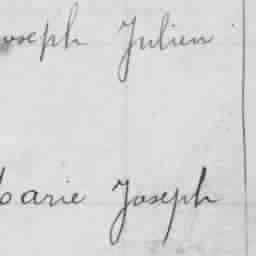 Joseph Julien
Marie Joseph